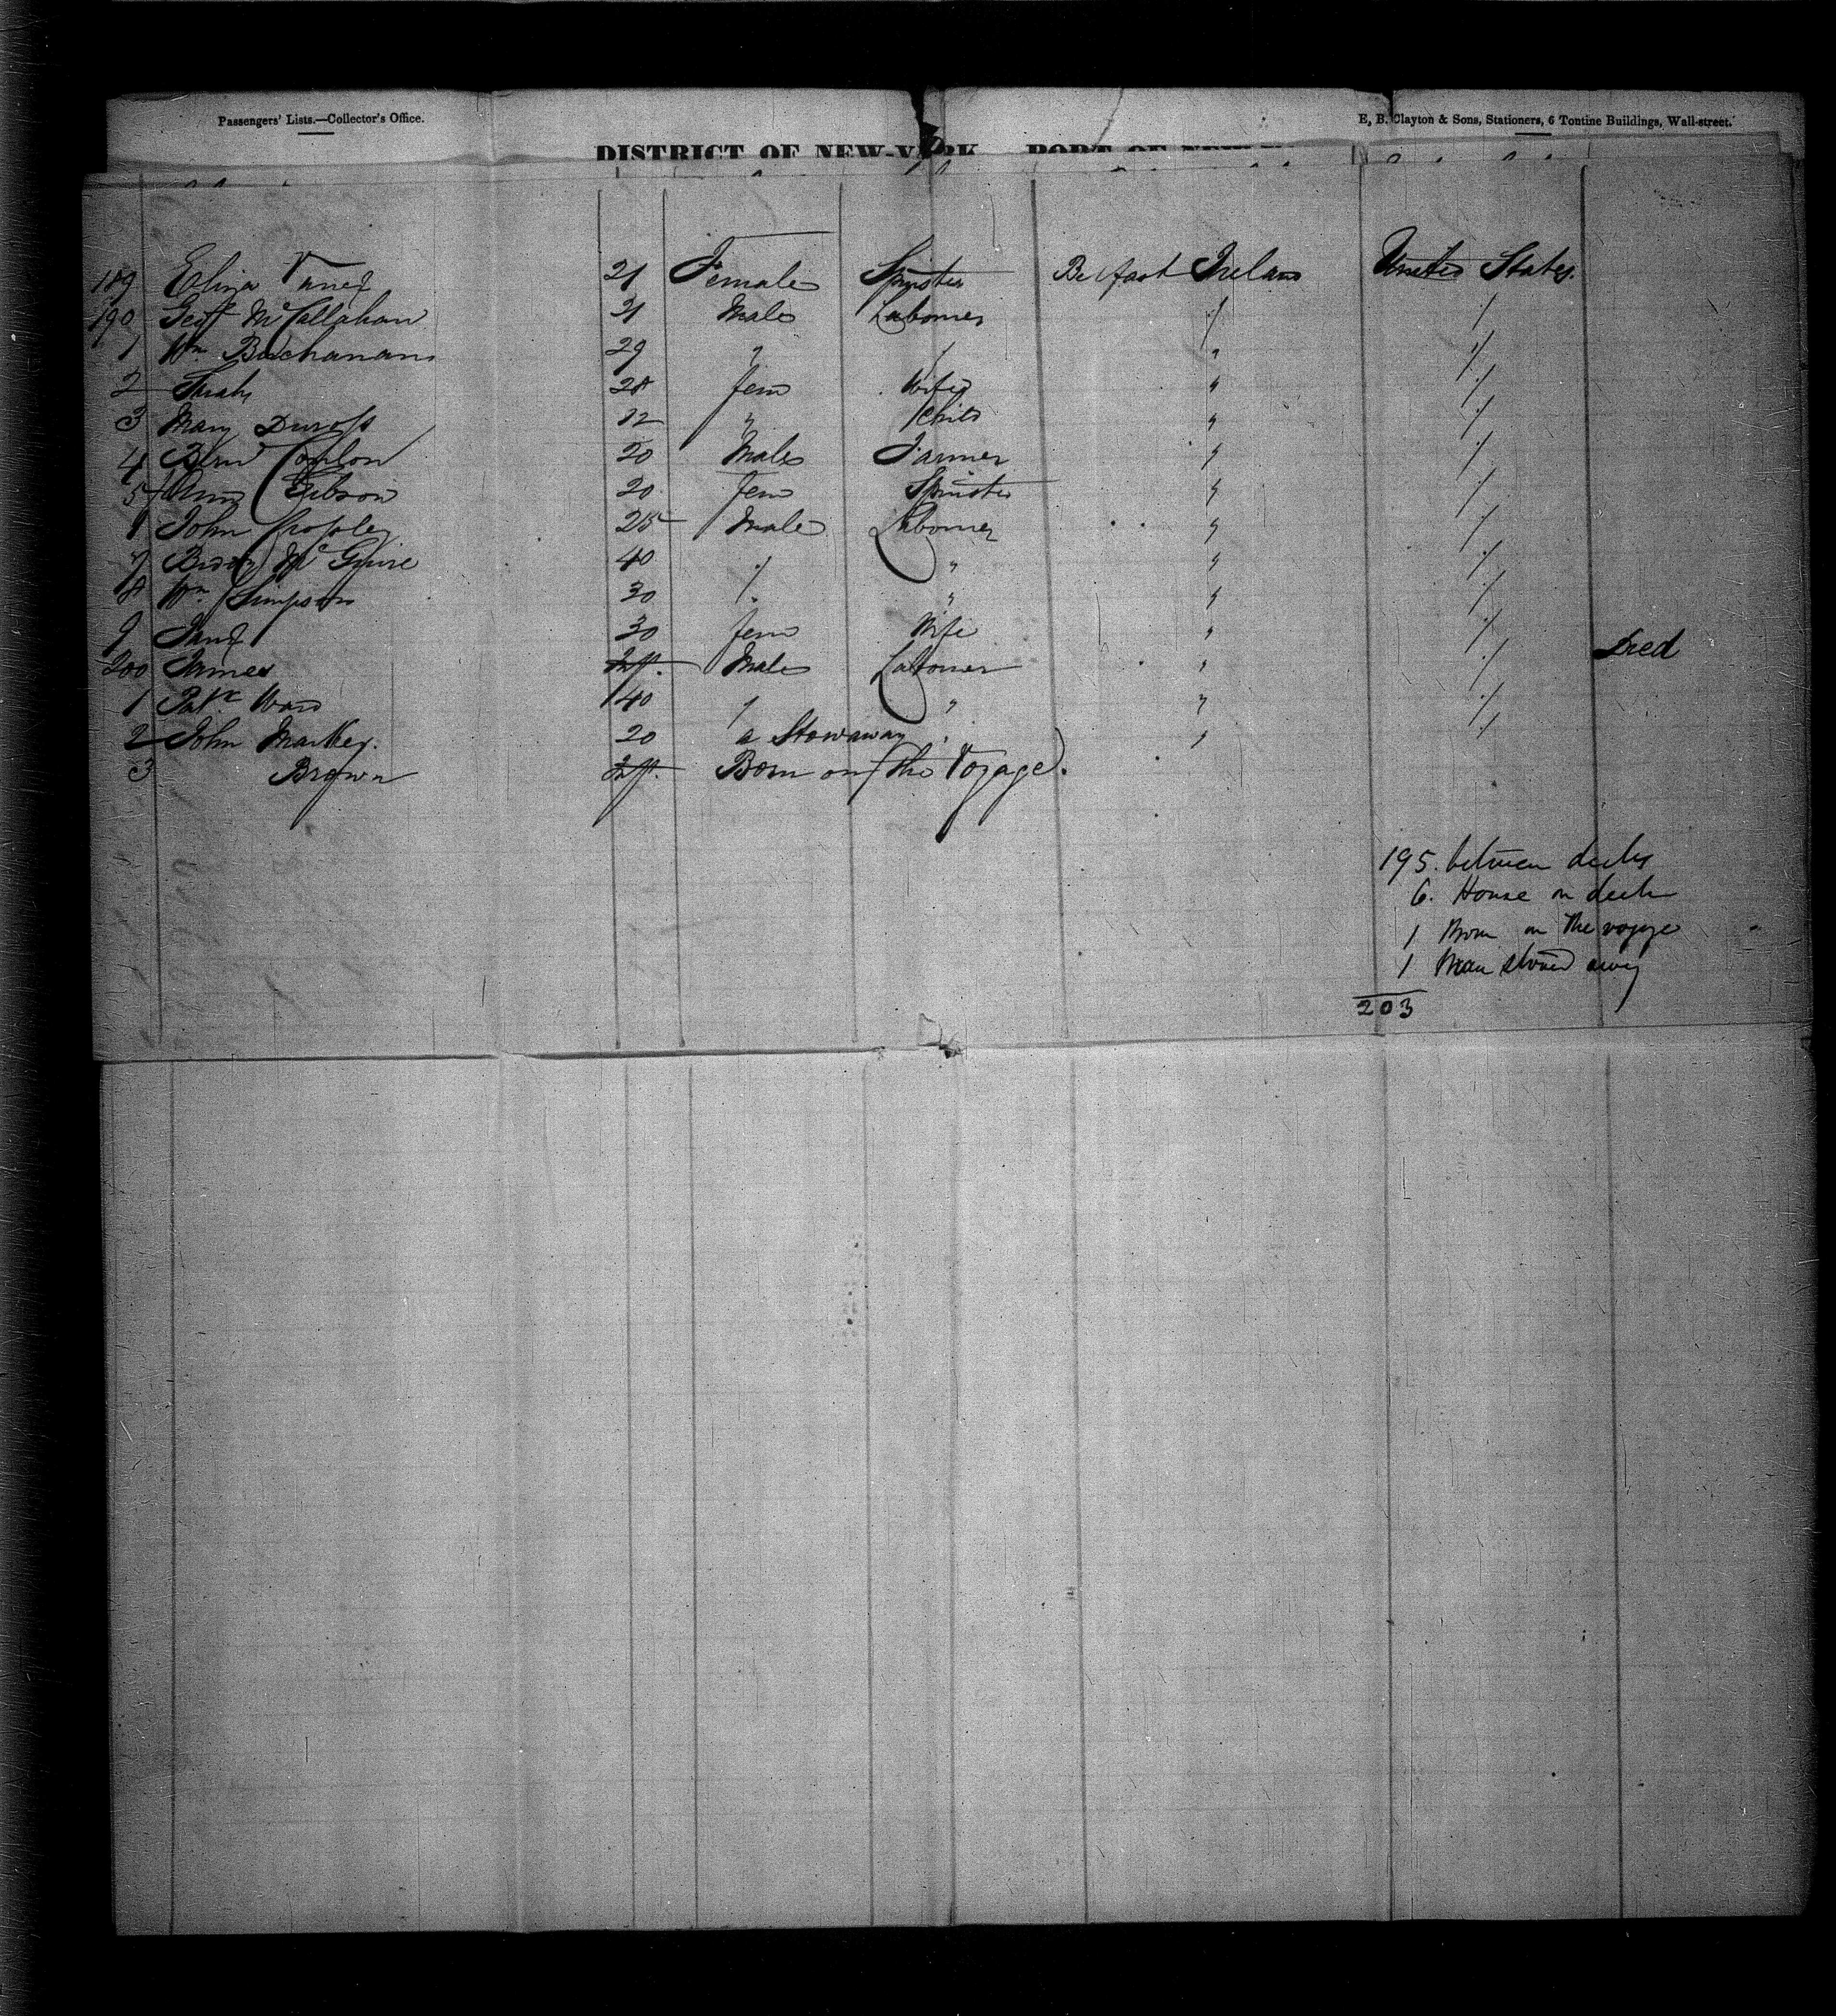 Passengers' Lists.—Collector's Office.
E. B. Clayton & Sons, Stationers, 6 Tontine Buildings, Wall-street.
DISTRICT OF NEW-YORK PORT OF
189 Eliza 21 Female Spinster Belfast Ireland United States.
190 McCallahan 21 Male Labourer
1 Wm Buchanan 29 "
2 Sarah 28 fem Wife "
3 Mary Duross 12 " Child "
4 Bernd Conlon 20 Male Farmer "
5 Ann Gibson 20 fem Spinster "
John 25 Male Labourer "
7 McGuire 40 " "
8 Wm Simpson 30 " "
9 Jane 30 fem Wife "
200 James Inft. Male Labourer " Died
1 Patk Ward 40 " " "
2 John Markey. 20 a Stowaway "
3 Brown Inft. Born on the Voyage.
195. between decks
6. House on deck
1 Born on the voyage
1 Man stowed away
203